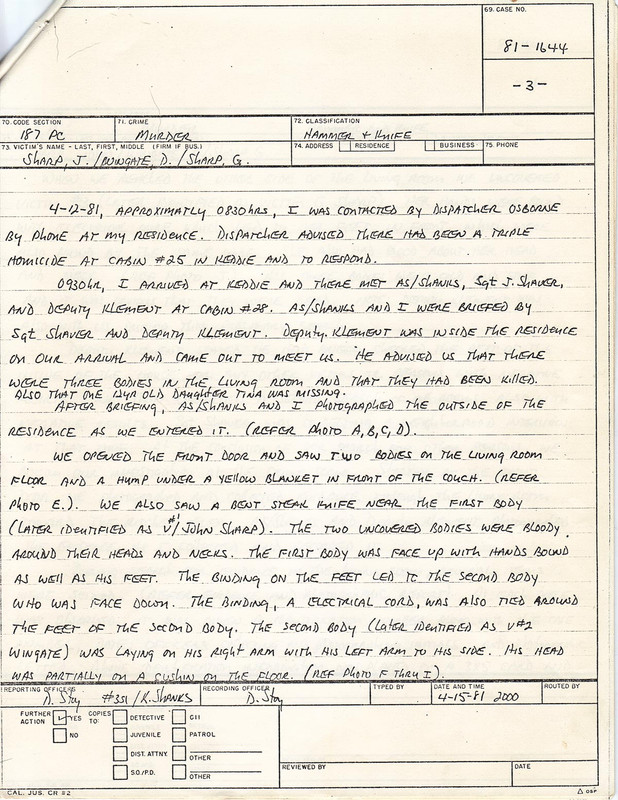 69. CASE NO.
81-1644
-3-
70. CODE SECTION 71. CRIME 72. CLASSIFICATION
187 PC MURDER HAMMER + KNIFE
73. VICTIM'S NAME - LAST, FIRST, MIDDLE (FIRM IF BUS.) 74. ADDRESS RESIDENCE BUSINESS 75. PHONE
SHARP, J. / WINGATE, D. / SHARP, G.
4-12-81, APPROXIMATLY 0830 HRS, I WAS CONTACTED BY DISPATCHER OSBORNE
BY PHONE AT MY RESIDENCE. DISPATCHER ADVISED THERE HAD BEEN A TRIPLE
HOMICIDE AT CABIN #25 IN KEDDIE AND TO RESPOND.
0930 HR, I ARRIVED AT KEDDIE AND THERE MET AS/SHANKS, Sgt J. SHAVER,
AND DEPUTY KLEMENT AT CABIN #28. AS/SHANKS AND I WERE BRIEFED BY
Sgt SHAVER AND DEPUTY KLEMENT. DEPUTY. KLEMENT WAS INSIDE THE RESIDENCE
ON OUR ARRIVAL AND CAME OUT TO MEET US. HE ADVISED US THAT THERE
WERE THREE BODIES IN THE LIVING ROOM AND THAT THEY HAD BEEN KILLED.
ALSO THAT ONE 12YR OLD DAUGHTER TINA WAS MISSING.
AFTER BRIEFING, AS/SHANKS AND I PHOTOGRAPHED THE OUTSIDE OF THE
RESIDENCE AS WE ENTERED IT. (REFER PHOTO A,B,C,D).
WE OPENED THE FRONT DOOR AND SAW TWO BODIES ON THE LIVING ROOM
FLOOR AND A HUMP UNDER A YELLOW BLANKET IN FRONT OF THE COUCH. (REFER
PHOTO E.). WE ALSO SAW A BENT STEAK KNIFE NEAR THE FIRST BODY
(LATER IDENTIFIED AS V#1 JOHN SHARP). THE TWO UNCOVERED BODIES WERE BLOODY
AROUND THEIR HEADS AND NECKS. THE FIRST BODY WAS FACE UP WITH HANDS BOUND
AS WELL AS HIS FEET. THE BINDING ON THE FEET LED TO THE SECOND BODY
WHO WAS FACE DOWN. THE BINDING, A ELECTRICAL CORD, WAS ALSO TIED AROUND
THE FEET OF THE SECOND BODY. THE SECOND BODY (LATER IDENTIFIED AS V#2
WINGATE) WAS LAYING ON HIS RIGHT ARM WITH HIS LEFT ARM TO HIS SIDE. HIS HEAD
WAS PARTIALLY ON A CUSHIN ON THE FLOOR. (REF PHOTO F THRU I).
REPORTING OFFICERS RECORDING OFFICER TYPED BY DATE AND TIME ROUTED BY
D. Stoy #351 / K. SHANKS D. Stoy 4-15-81 2000
FURTHER ACTION YES NO COPIES TO: DETECTIVE CII
JUVENILE PATROL
DIST. ATTNY. OTHER
S.O./P.D. OTHER
REVIEWED BY DATE
CAL. JUS. CR #2